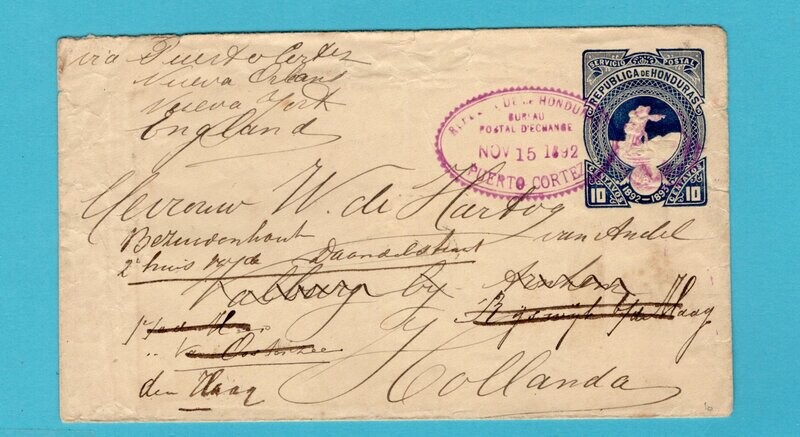 via Puerto Cortez
Nueva Orleans
Nueva York
England
SERVICIO POSTAL
REPUBLICA DE HONDURAS
10 CENTAVOS
1892-1893
CENTAVOS 10
HONDURAS
BUREAU
POSTAL D'ECHANGE
NOV 15 1892
PUERTO CORTEZ
Mevrouw W. de Hartog
van Andel
Bezuidenhout
2e huis v/d Daendelstraat
Valburg by Arnhem
Rijswijk b/d Haag
den Haag
Hollanda